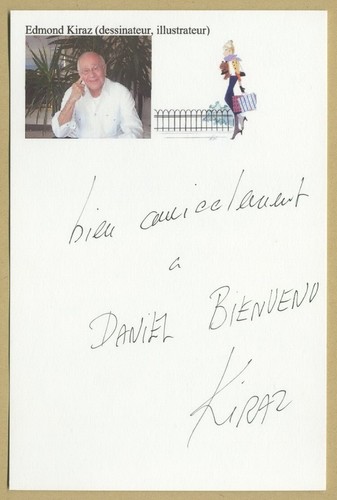 Edmond Kiraz (dessinateur, illustrateur)
bien amicalement
a
DANIEL BIENVENU
KIRAZ